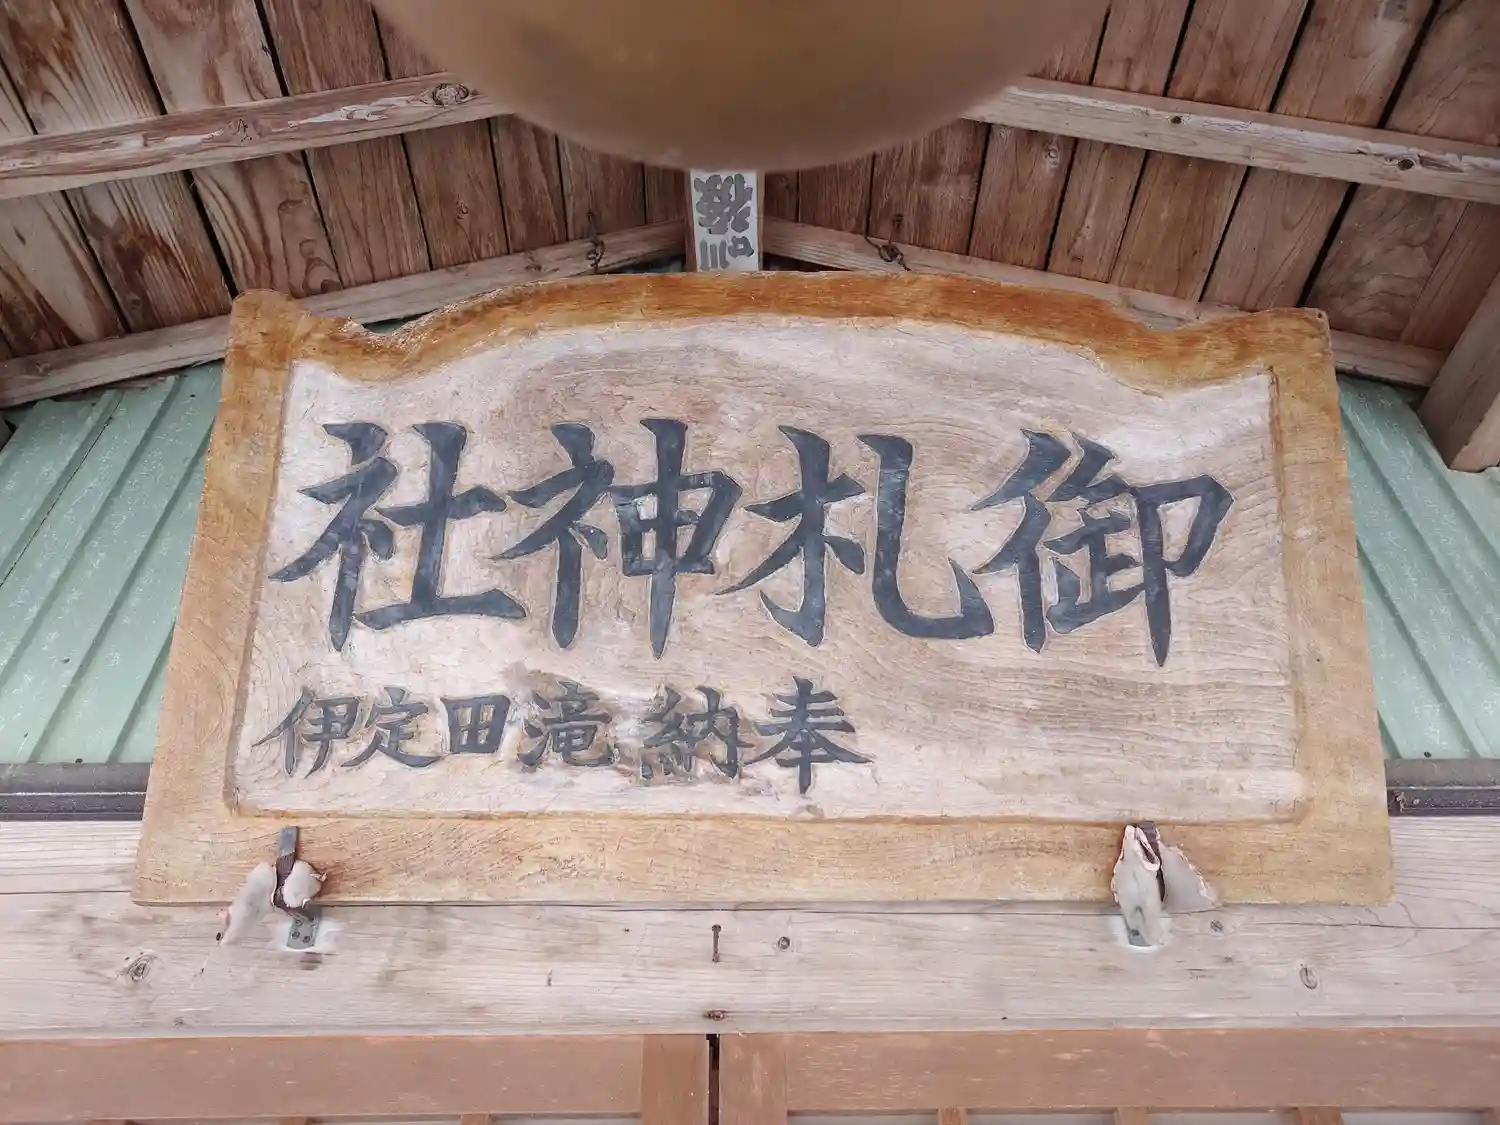 御札神社
奉納 滝田定伊